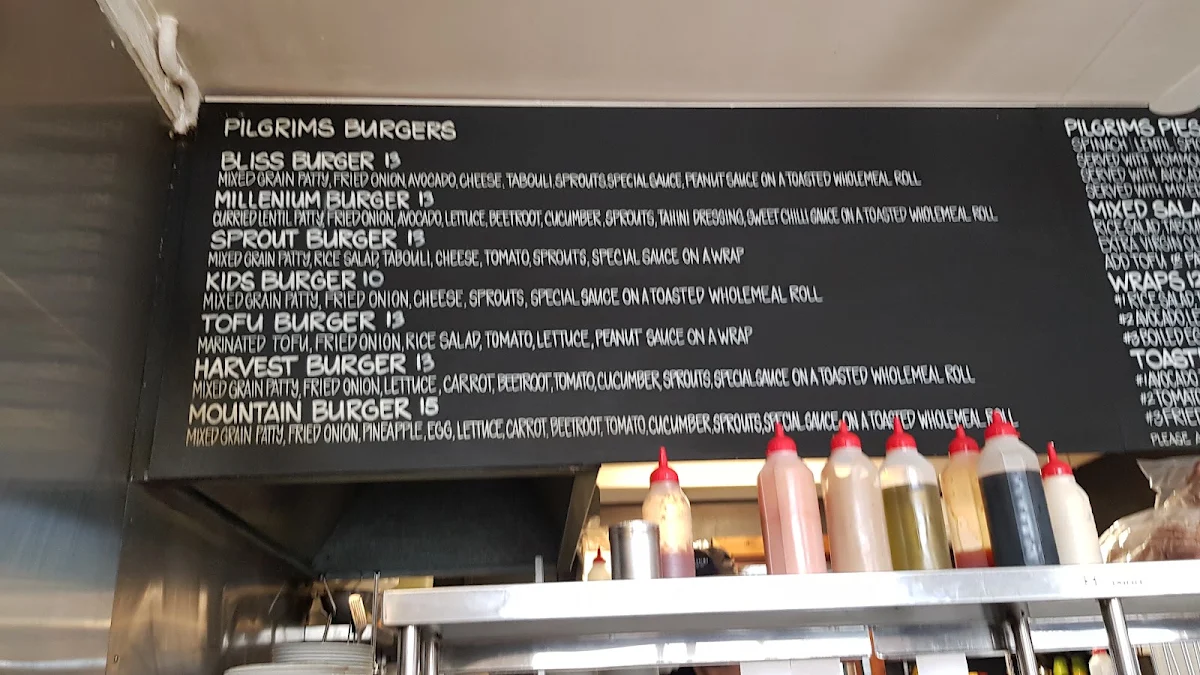 PILGRIMS BURGERS
BLISS BURGER 13
MIXED GRAIN PATTY, FRIED ONION, AVOCADO, CHEESE, TABOULI, SPROUTS, SPECIAL SAUCE, PEANUT SAUCE ON A TOASTED WHOLEMEAL ROLL
MILLENIUM BURGER 13
CURRIED LENTIL PATTY, FRIED ONION, AVOCADO, LETTUCE, BEETROOT, CUCUMBER, SPROUTS, TAHINI DRESSING, SWEET CHILLI SAUCE ON A TOASTED WHOLEMEAL ROLL
SPROUT BURGER 13
MIXED GRAIN PATTY, RICE SALAD, TABOULI, CHEESE, TOMATO, SPROUTS, SPECIAL SAUCE ON A WRAP
KIDS BURGER 10
MIXED GRAIN PATTY, FRIED ONION, CHEESE, SPROUTS, SPECIAL SAUCE ON A TOASTED WHOLEMEAL ROLL
TOFU BURGER 13
MARINATED TOFU, FRIED ONION, RICE SALAD, TOMATO, LETTUCE, PEANUT SAUCE ON A WRAP
HARVEST BURGER 13
MIXED GRAIN PATTY, FRIED ONION, LETTUCE, CARROT, BEETROOT, TOMATO, CUCUMBER, SPROUTS, SPECIAL SAUCE ON A TOASTED WHOLEMEAL ROLL
MOUNTAIN BURGER 15
MIXED GRAIN PATTY, FRIED ONION, PINEAPPLE, EGG, LETTUCE, CARROT, BEETROOT, TOMATO, CUCUMBER, SPROUTS, SPECIAL SAUCE ON A TOASTED WHOLEMEAL ROLL
PILGRIMS PIES
SPINACH LENTIL
SERVED WITH
SERVED WITH
SERVED WITH
MIXED
RICE SALAD
EXTRA VIRGIN
ADD TOFU
WRAPS
#1 RICE SALAD
#2 AVOCADO
#3 BOILED
#1 AVOCADO
#2
#3
PLEASE